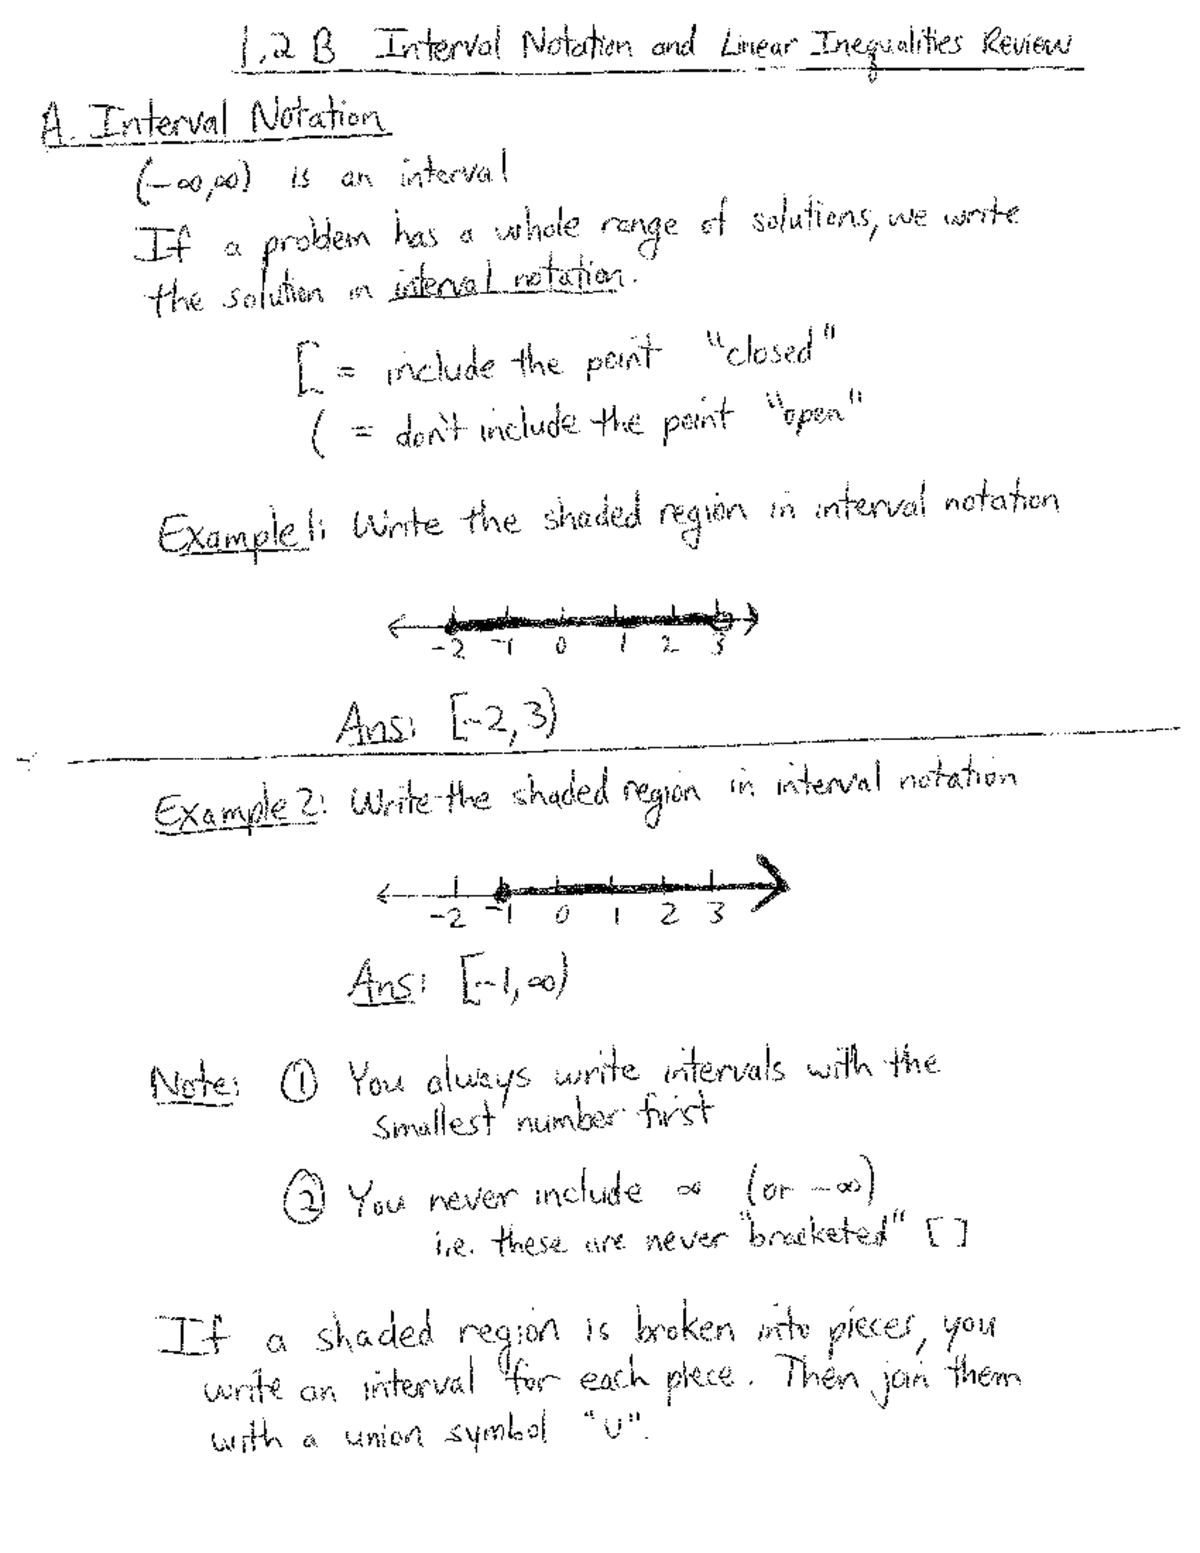 1.2 B Interval Notation and Linear Inequalities Review
A. Interval Notation
(-∞,∞) is an interval
If a problem has a whole range of solutions, we write
the solution in interval notation.
[ = include the point "closed"
( = don't include the point "open"
Example 1: Write the shaded region in interval notation
-2 -1 0 1 2 3
Ans: [-2, 3)
Example 2: Write the shaded region in interval notation
-2 -1 0 1 2 3
Ans: [-1, ∞)
Note: ① You always write intervals with the
smallest number first
② You never include ∞ (or -∞)
i.e. these are never "bracketed" [ ]
If a shaded region is broken into pieces, you
write an interval for each piece. Then join them
with a union symbol "∪".